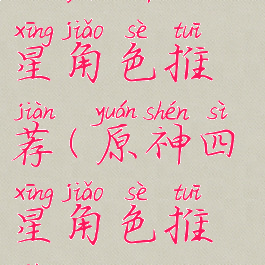 xīng jiǎo sè tuī
星角色推
jiàn yuán shén sì
荐(原神四
xīng jiǎo sè tuī
星角色推